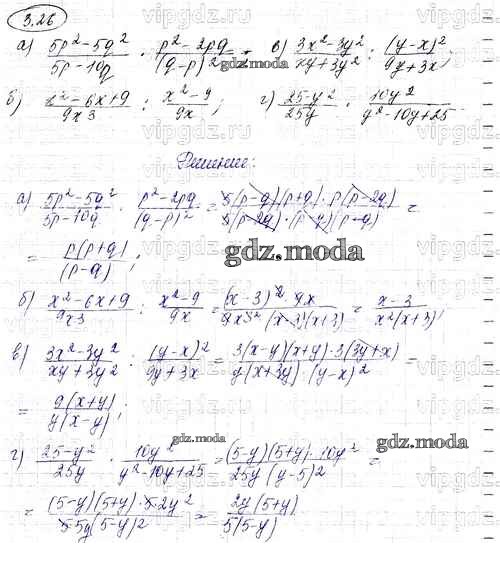 3.26
а) (5p²-5q²)/(5p-10q) · (p²-2pq)/(q-p)²; в) (3x²-3y²)/(xy+3y²) : (y-x)²/(9y+3x);
б) (x²-6x+9)/(9x³) : (x²-9)/(9x); г) (25-y²)/(25y) · (10y²)/(y²-10y+25)
Решение:
а) (5p²-5q²)/(5p-10q) · (p²-2pq)/(q-p)² = (5(p-q)(p+q)·p(p-2q))/(5(p-2q)·(p-q)(p-q)) =
= (p(p+q))/(p-q);
б) (x²-6x+9)/(9x³) : (x²-9)/(9x) = ((x-3)²·9x)/(9x³·(x-3)(x+3)) = (x-3)/(x²(x+3));
в) (3x²-3y²)/(xy+3y²) : (y-x)²/(9y+3x) = (3(x-y)(x+y)·3(3y+x))/(y(x+3y)·(y-x)²) =
= (9(x+y))/(y(x-y));
г) (25-y²)/(25y) · (10y²)/(y²-10y+25) = ((5-y)(5+y)·10y²)/(25y(y-5)²) =
= ((5-y)(5+y)·5·2y²)/(5·5y(5-y)²) = (2y(5+y))/(5(5-y))
gdz.moda
gdz.moda
gdz.moda
gdz.moda
vipgdz.com